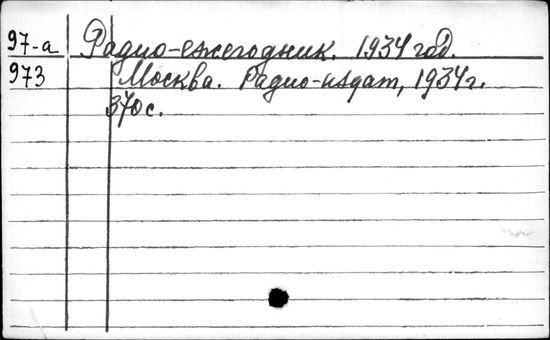 97-а Радио-ежегодник. 1934 год.
973 Москва. Радио-издат, 1934 г.
370 с.